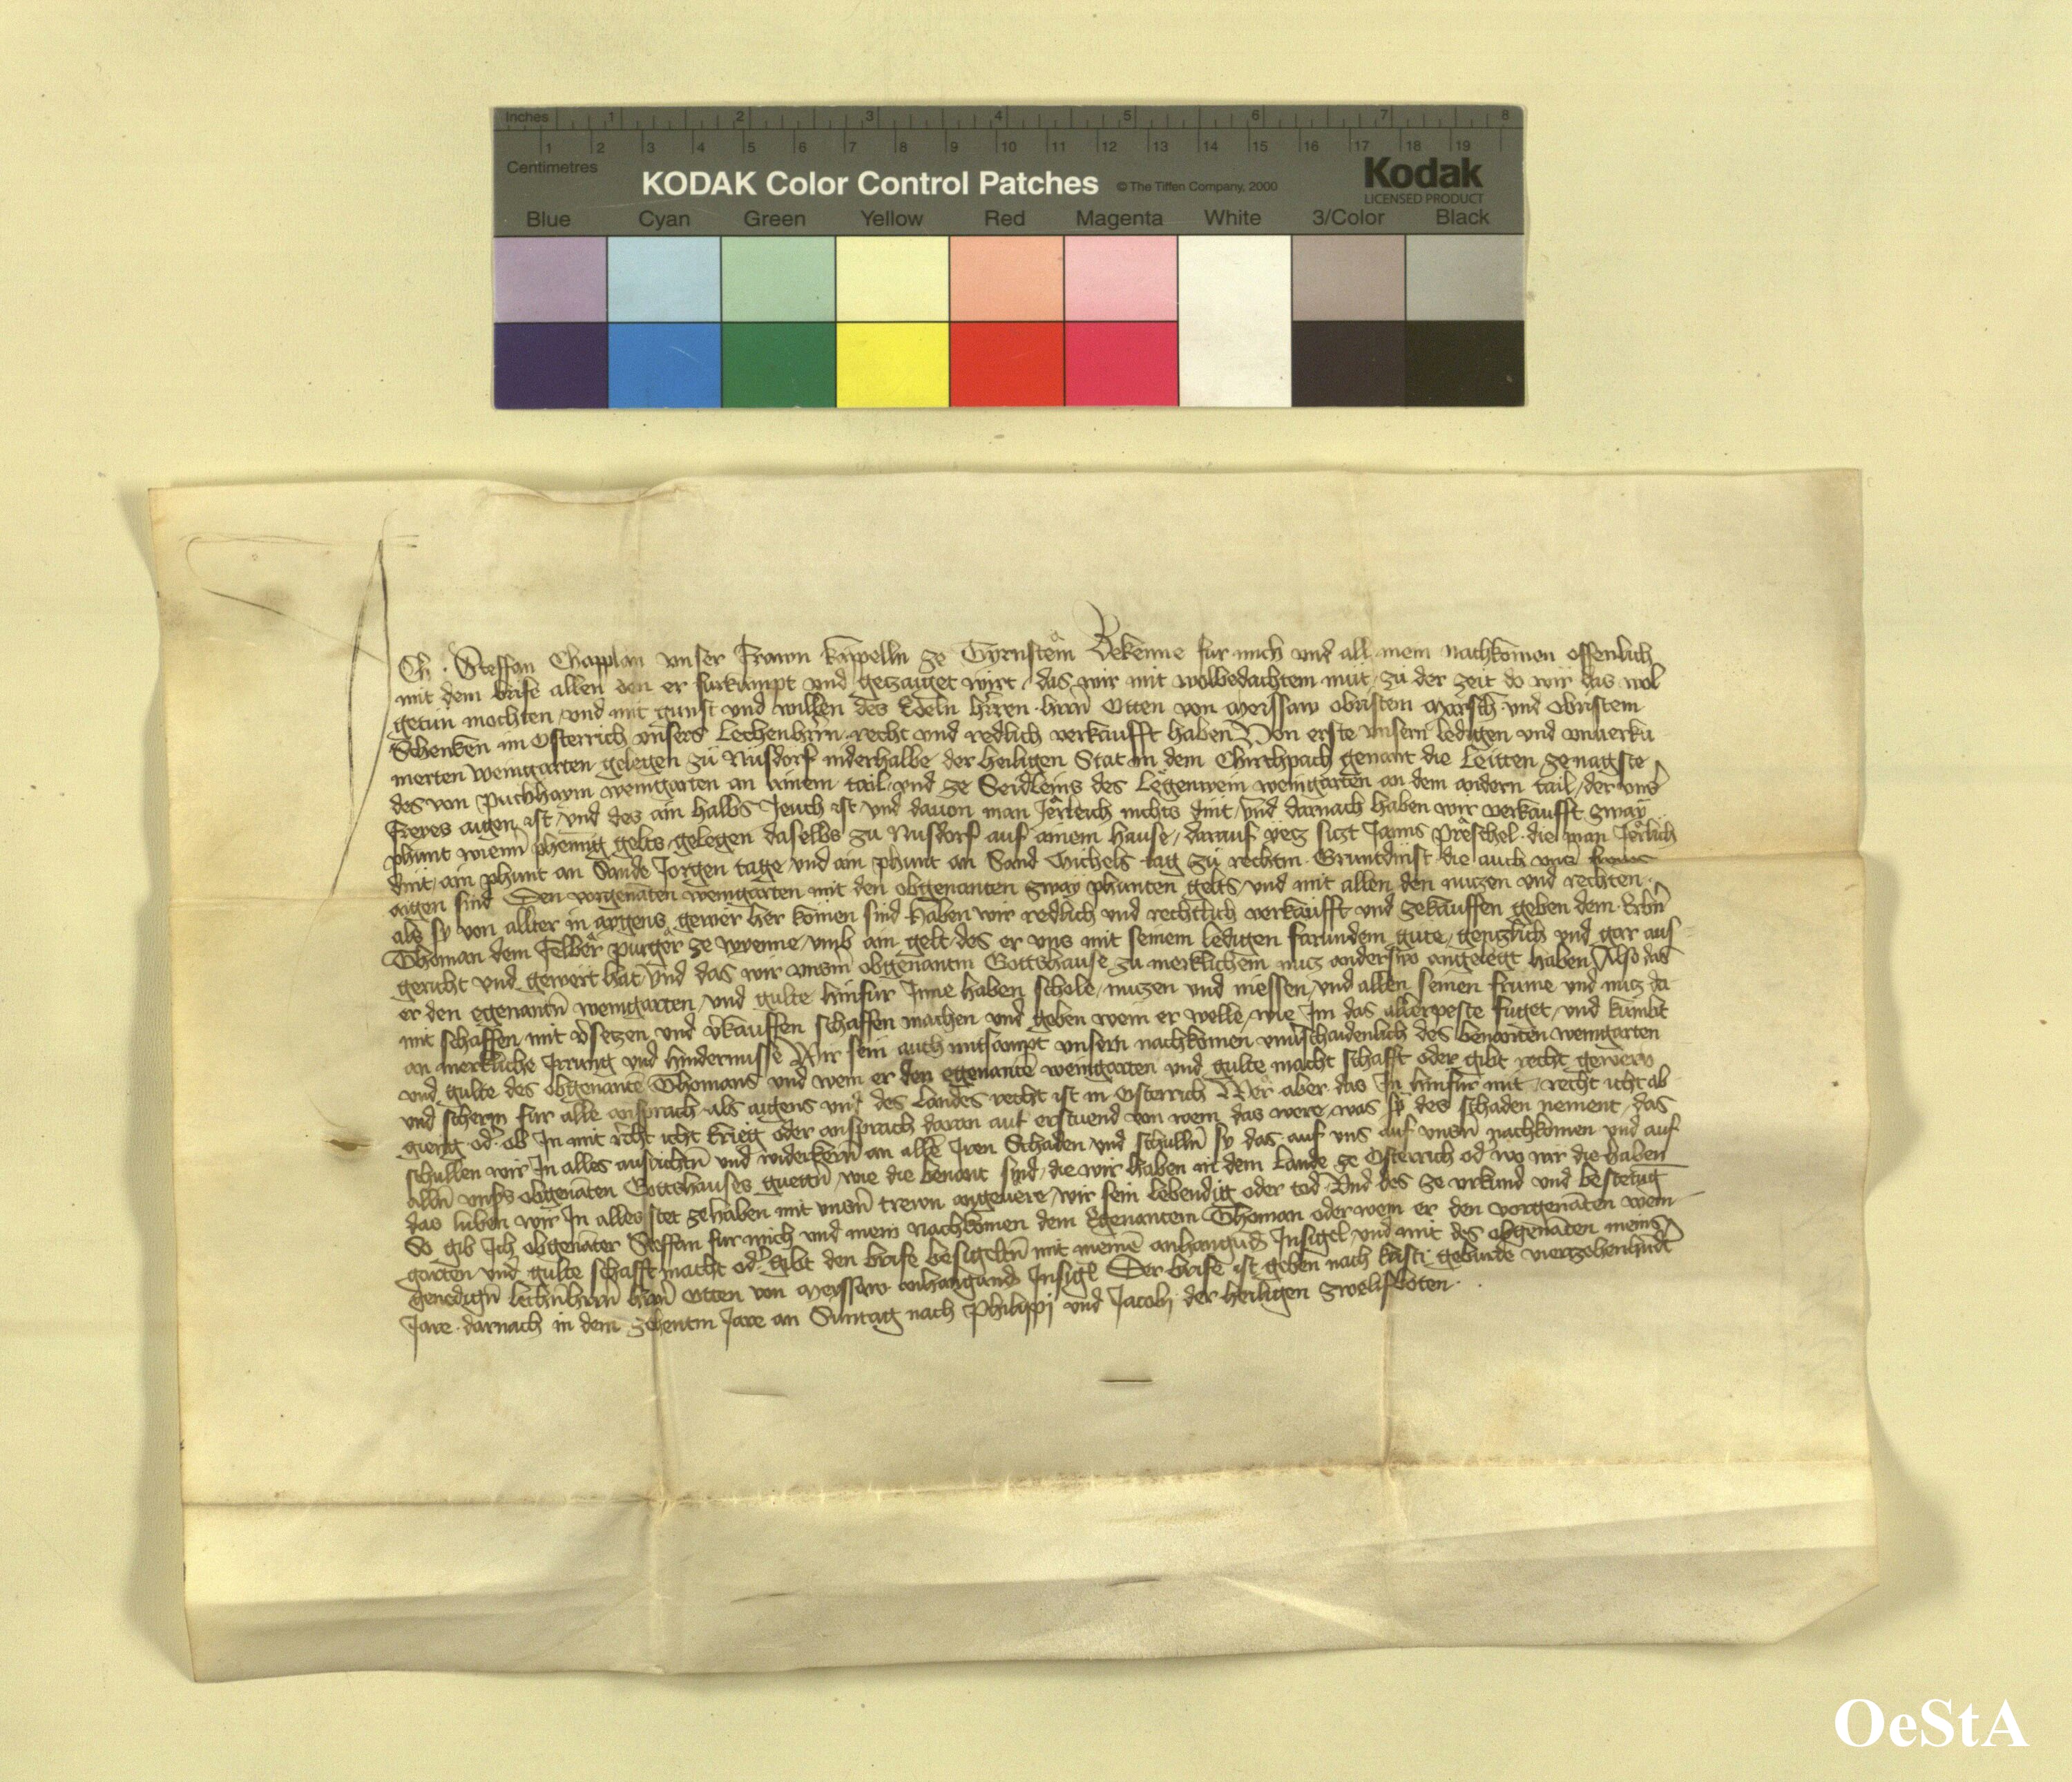 Inches 1 2 3 4 5 6 7 8
Centimetres 1 2 3 4 5 6 7 8 9 10 11 12 13 14 15 16 17 18 19
KODAK Color Control Patches © The Tiffen Company, 2000 Kodak
LICENSED PRODUCT
Blue Cyan Green Yellow Red Magenta White 3/Color Black
Ich Steffan Chapplan vnser Frawn kappelln ze Tyrnstein Bekenne fur mich vnd all mein nachkomen offenlich
mit dem brife allen den er furkumpt vnd getzaiget wirt / das wir mit wolbedachtem mut / zu der zeit do wir das wol
getun mochten / vnd mit gunst vnd willen des Edeln hrren hrrn Otten von Meissaw obristem Marsch vnd obristem
Schenken in Osterrich vnsers Lechenhrrn recht vnd redlich verkaufft haben Von erste vnsern ledigen vnd vnuerku
merten weingarten gelegen zu Nusdorf niderhalbe der heiligen Stat in dem Chirchpach genant die Leitten zenagste
des von Puchhaym weingarten an ainem tail / vnd ze Seidleins des Legenwein weingarten an dem andern tail / der vns
freyes aigen ist / vnd des ain halbs Jeuch ist vnd dauon man Jerleich nichts dint / vnd darnach haben wir verkaufft zway
phunt wienn phennig gelts gelegen daselbs zu Nusdorf auf ainem hause / darauf yecz siczt Janns Preschel die man Jerlich
dint / ain phunt an Sande Jorgen tage / vnd ain phunt an Sand Michels tag zu rechtm Gruntdinst die auch vnser freies
aigen sind Den vorgenanten weingarten mit den obgenanten zway phunten gelts / vnd mit allen den nuczen vnd rechten
als sy von allter in aygens gewer her komen sind haben wir redlich vnd rechtlich verkaufft vnd zekauffen geben dem Erbn
Thoman dem Felber purger ze wyenne / vmb ain gelt / des er vns mit seinem ledigen farundem gute genczlich vnd gar aus
gericht vnd gewert hat vnd das wir vnserm obgenantn Gottshause zu merklichem nucz anderswo angelegt haben Also das
er den egenantn weingarten / vnd gulte hinfur Inne haben schole / nuczen vnd niessen / vnd allen seinen frume vnd nucz da
mit schaffen mit vseczen vnd vkauffen schaffen machen vnd geben wem er welle / wie Im das allerpeste fuget / vnd kumbt
an merkliche Irrung vnd hindernusse Wir sein auch mitsampt vnsern nachkomen vnuschaidenlich des benanten weingarten
vnd gulte des obgenante Thomans vnd wem er den egenante weingarten vnd gulte macht schafft oder gibt recht gewern
vnd scherm fur alle ansprach als aigens vnd des Landes recht ist in Osterrich Wer aber das In hinfur mit recht icht ab
gieng od ob In mit recht icht krieg oder ansprach daran auf erstuend von wem das were was sy des schaden nement / das
schullen wir In alles ausrichtn vnd widerkern an alle Iren Schaden / vnd schulln sy das auf vns auf vnsrn nachkomen vnd auf
alln vnsers obgenanten Gottshauses guettn / wie die benant sind / die wir haben in dem Lande ze Osterrich od wo wir die haben
das luben wir In alles stet zehaben mit vnsrn trewn angeuere / wir sein lebendig oder tod Vnd des ze vrkund vnd bestetug
So gib Ich obgenanter Steffan fur mich vnd mein nachkomen dem Egenantem Thoman oder wem er den vorgenanten wein
garten vnd gulte schafft macht od gibt den brife besigeltn mit meine anhangund Insigel / vnd mit des obgenanten meins
genedign lechnhrrn hrrn Otten von Meyssaw anhangund Insigl Der brife ist geben nach kristi geburde vierzehenhundt
Jare darnach in dem zehentm Jare an Suntag nach Philippi vnd Jacobi der heiligen zwelifboten
OeStA